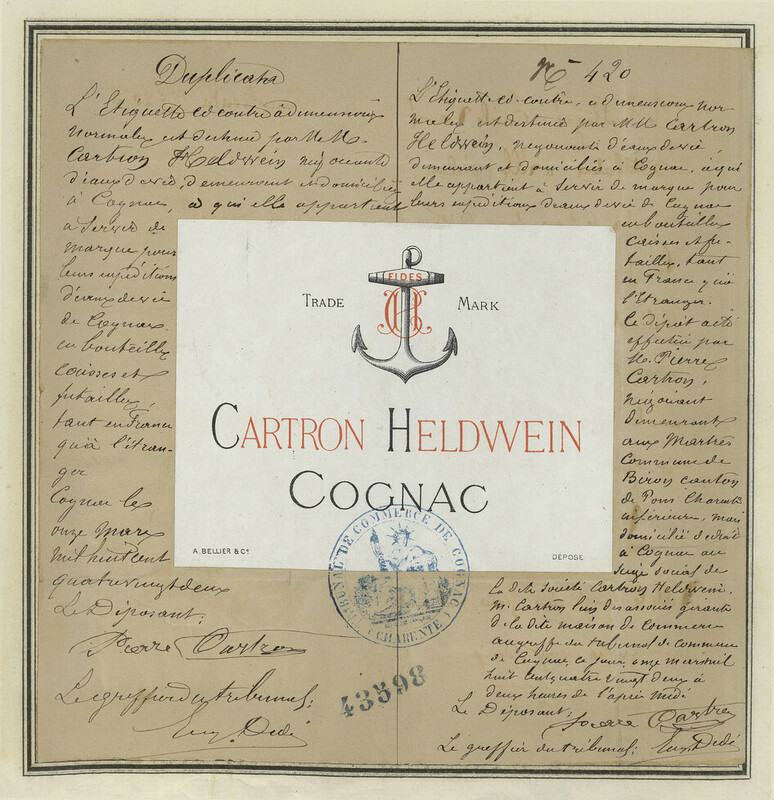 Duplicata
L'Etiquette ci contre à dimensions
normales est destinée par M.M.
Cartron Heldwein négociants
d'eaux de vie, demeurant et domiciliés
à Cognac, à qui elle appartient
à servir de
marque pour
leurs expéditions
d'eaux de vie
de Cognac
en bouteilles
caisses et
futailles,
tant en France
qu'à l'étran-
ger
Cognac le
onze Mars
mil huit cent
quatre vingt deux
Le Déposant:
Pierre Cartron
Le greffier du tribunal:
Eug. Didé
No 420
L'Etiquette ci contre, à dimensions nor-
males est destinée par MM Cartron
Heldwein, négociants d'eaux de vie,
demeurant et domiciliés à Cognac, à qui
elle appartient à servir de marque pour
leurs expéditions d'eaux de vie de Cognac
en bouteilles
caisses et fu-
tailles, tant
en France qu'à
l'Etranger.
Ce dépôt a été
effectué par
M. Pierre
Cartron,
négociant
demeurant
aux Martres
Commune de
Biron canton
de Pons Charente
inférieure, mais
domicilié de droit
à Cognac au
siège social de
la dite société Cartron Heldwein.
M. Cartron l'un des associés gérants
de la dite maison de commerce
au greffe du tribunal de commerce
de Cognac, ce jour, onze mars mil
huit cent quatre vingt deux à
deux heures de l'après midi
Le Déposant: Pierre Cartron
Le greffier du tribunal: Eug. Didé
FIDES
TRADE MARK
CH
CARTRON HELDWEIN
COGNAC
A. BELLIER & Cie
DÉPOSÉ
TRIBUNAL DE COMMERCE DE COGNAC
(CHARENTE)
43598